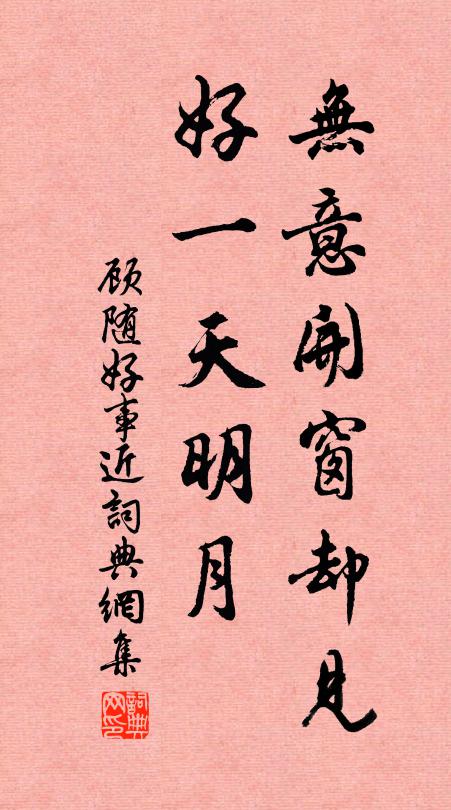 無意開窗却見
好一天明月
顾随好事近詞典網集
詞典
网印